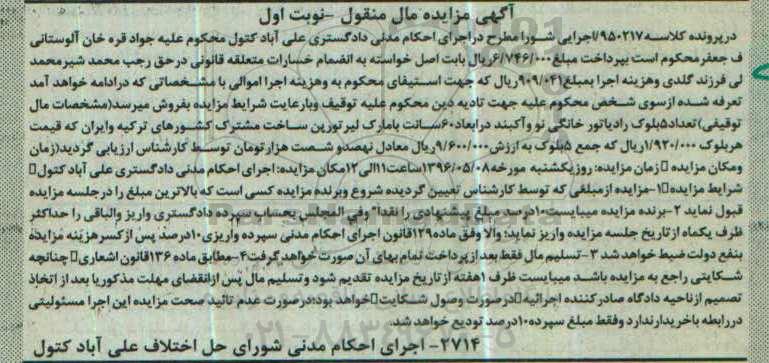 آگهی مزایده مال منقول -نوبت اول
درپرونده کلاسه ۹۵۰۲۱۷/اجرایی شورا مطرح دراجرای احکام مدنی دادگستری علی آباد کتول محکوم علیه جواد قره خان آلوستانی
ف جعفر محکوم است بپرداخت مبلغ ۶/۷۴۶/۰۰۰ریال بابت اصل خواسته به انضمام خسارات متعلقه قانونی درحق رجب محمد شیرمحمد
لی فرزند گلدی وهزینه اجرا بمبلغ ۹۰۹/۰۴۱ریال که جهت استیفای محکوم به وهزینه اجرا اموالی با مشخصاتی که درادامه خواهد آمد
تعرفه شده ازسوی شخص محکوم علیه جهت تادیه دین محکوم علیه توقیف وبارعایت شرایط مزایده بفروش میرسد(مشخصات مال
توقیفی)تعداد۵بلوک رادیاتور خانگی نو وآکبند درابعاد۶۰سانت بامارک لیرتورپن ساخت مشترک کشورهای ترکیه وایران که قیمت
هربلوک ۱/۹۲۰/۰۰۰ریال که جمع ۵بلوک به ارزش۹/۶۰۰/۰۰۰ریال معادل نهصدو شصت هزارتومان توسط کارشناس ارزیابی گردید(زمان
ومکان مزایده زمان مزایده: روزیکشنبه مورخه ۱۳۹۶/۰۵/۰۸ساعت۱۱الی۱۲مکان مزایده: اجرای احکام مدنی دادگستری علی آباد کتول
شرایط مزایده ۱-مزایده ازمبلغی که توسط کارشناس تعیین گردیده شروع وبرنده مزایده کسی است که بالاترین مبلغ را درجلسه مزایده
قبول نماید ۲-برنده مزایده میبایست۱۰درصد مبلغ پیشنهادی را نقدا" وفی المجلس بحساب سپرده دادگستری واریز والباقی را حداکثر
ظرف یکماه ازتاریخ جلسه مزایده واریز نماید؛ والا وفق ماده۱۲۹قانون اجرای احکام مدنی سپرده واریزی۱۰درصد پس ازکسرهزینه مزایده
بنفع دولت ضبط خواهد شد ۳-تسلیم مال فقط بعد ازپرداخت تمام بهای آن صورت خواهد گرفت۴-مطابق ماده۱۳۶قانون اشعاری چنانچه
شکایتی راجع به مزایده باشد میبایست ظرف ۱هفته ازتاریخ مزایده تقدیم شود وتسلیم مال پس ازانقضای مهلت مذکوریا بعد از اتخاذ
تصمیم ازناحیه دادگاه صادرکننده اجرائیه درصورت وصول شکایت خواهد بود؛درصورت عدم تائید صحت مزایده این اجرا مسئولیتی
دررابطه باخریدارندارد وفقط مبلغ سپرده۱۰درصد تودیع خواهد شد.
۲۷۱۴- اجرای احکام مدنی شورای حل اختلاف علی آباد کتول